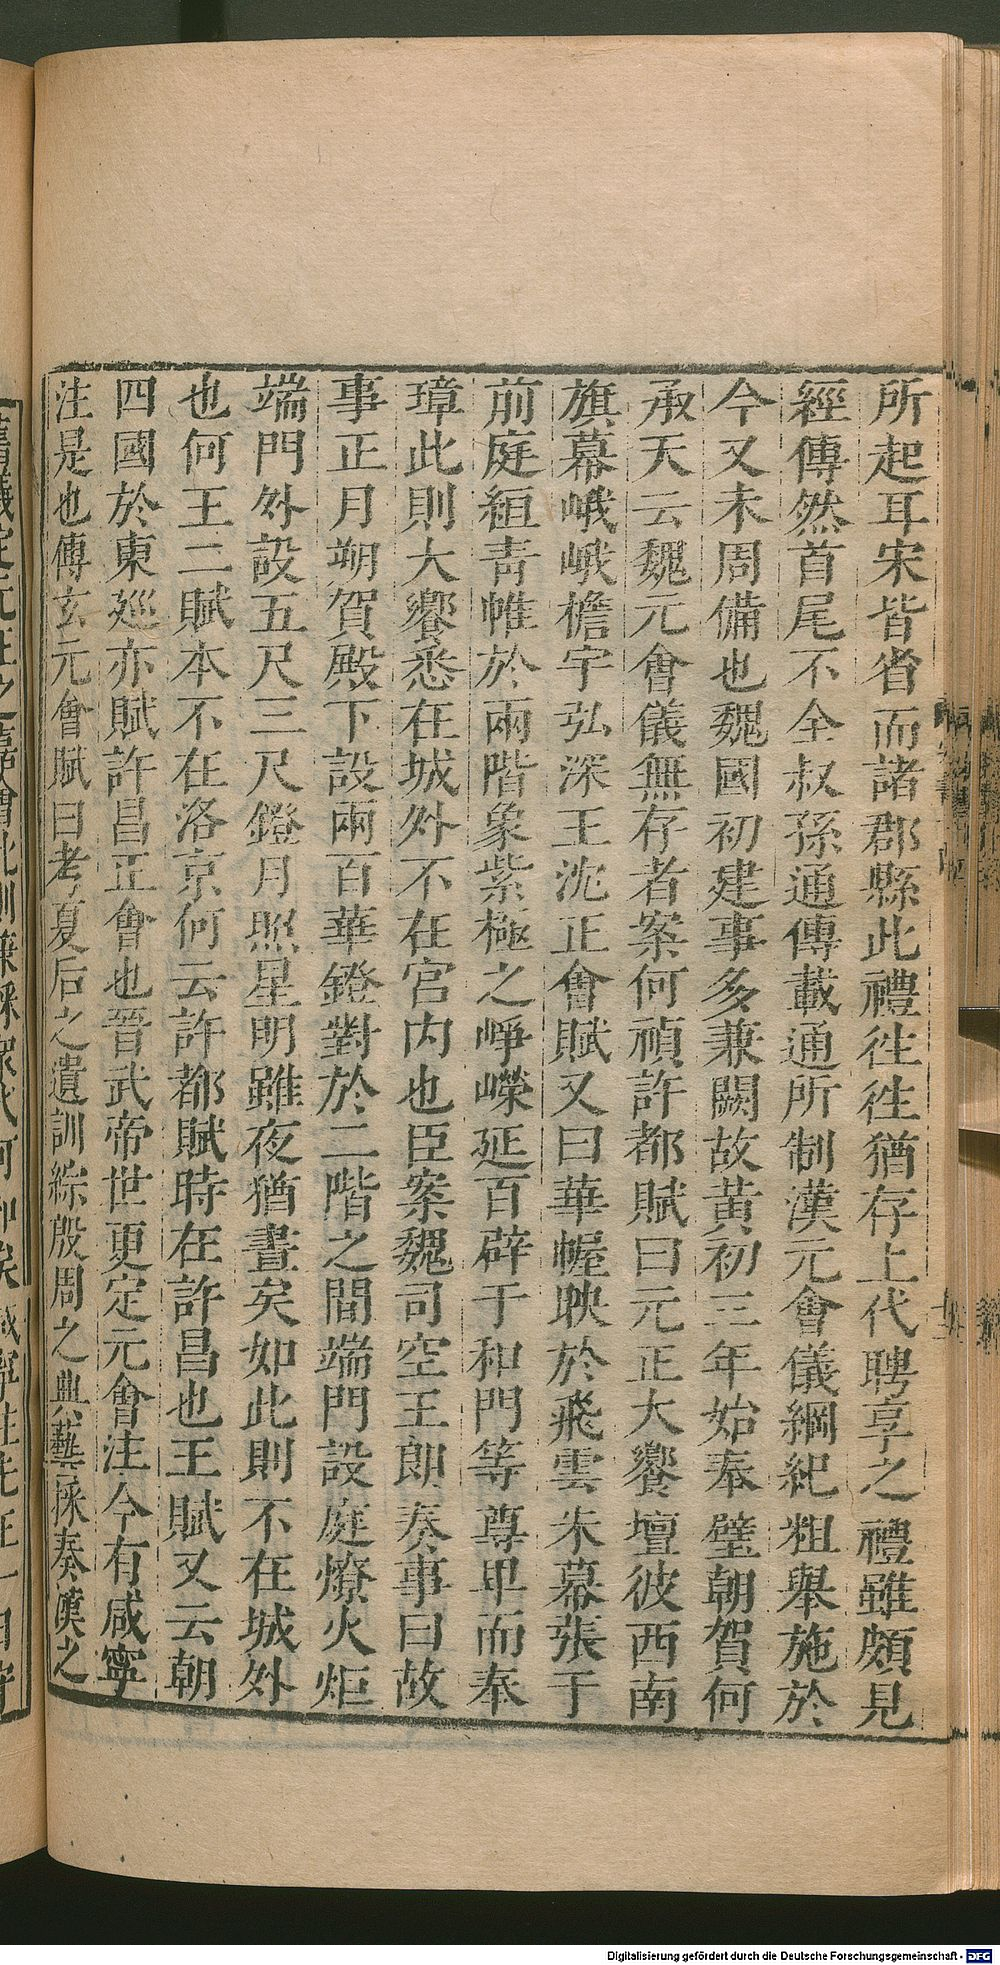 所起耳宋皆省而諸郡縣此禮徃徃猶存上代聘享之禮雖頗見
經傳然首尾不全叔孫通傳載通所制漢元會儀綱紀粗舉施於
今又未周備也魏國初建事多兼闕故黃初三年始奉璧朝賀何
承天云魏元會儀無存者案何禎許都賦曰元正大饗壇彼西南
旗幕峨峨檐宇弘深王沈正會賦又曰華幄映於飛雲朱幕張于
前庭絙靑帷於兩階象紫極之崢嶸延百辟于和門等尊卑而奉
璋此則大饗悉在城外不在宮内也臣案魏司空王朗奏事曰故
事正月朔賀殿下設兩百華鐙對於二階之間端門設庭燎火炬
端門外設五尺三尺鐙月照星明雖夜猶晝矣如此則不在城外
也何王二賦本不在洛京何云許都賦時在許昌也王賦又云朝
四國於東廵亦賦許昌正會也晉武帝世更定元會注今有咸寧
注是也傳玄元會賦曰考夏后之遺訓綜殷周之典藝採秦漢之
Digitalisierung gefördert durch die Deutsche Forschungsgemeinschaft - DFG